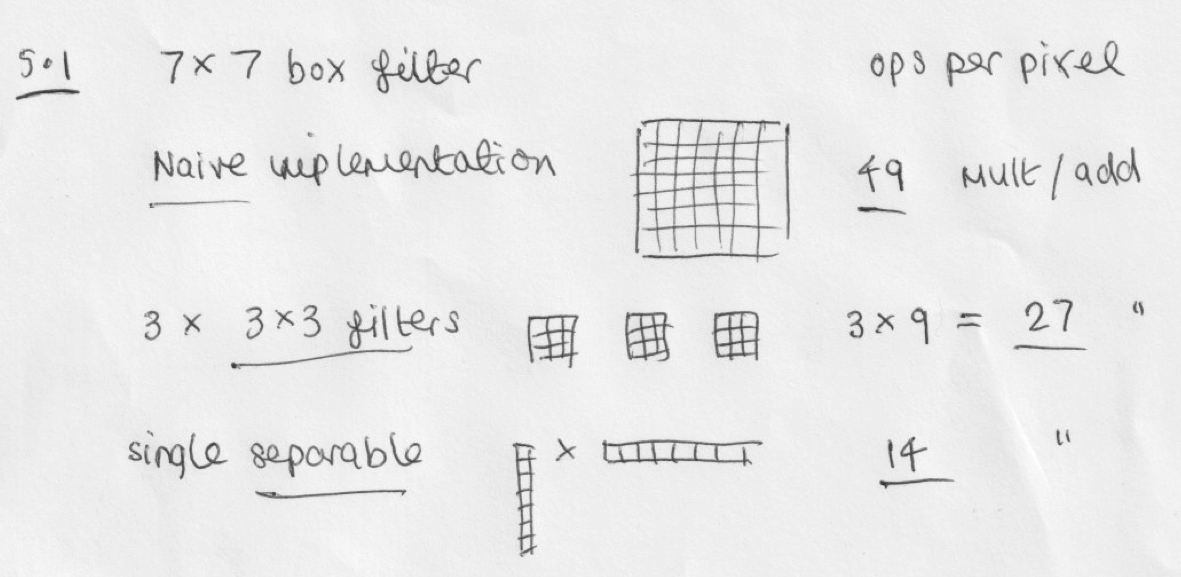 5.1 7×7 box filter ops per pixel
Naive implementation 49 Mult/add
3 × 3×3 filters 3×9 = 27 "
single separable × 14 "